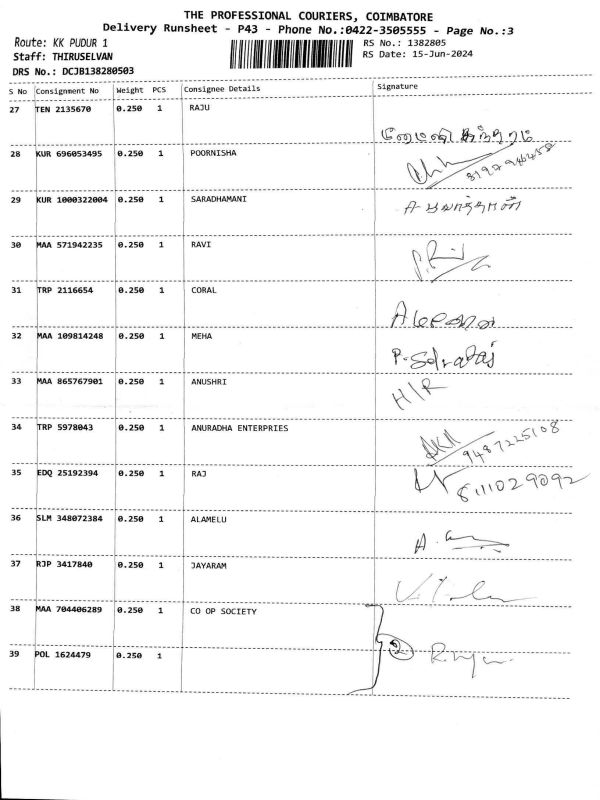 THE PROFESSIONAL COURIERS, COIMBATORE
Delivery Runsheet - P43 - Phone No.:0422-3505555 - Page No.:3
Route: KK PUDUR 1
RS No.: 1382805
Staff: THIRUSELVAN
RS Date: 15-Jun-2024
DRS No.: DCJB138280503
S No Consignment No Weight PCS Consignee Details Signature
27 TEN 2135670 0.250 1 RAJU
28 KUR 696053495 0.250 1 POORNISHA
29 KUR 1000322004 0.250 1 SARADHAMANI
30 MAA 571942235 0.250 1 RAVI
31 TRP 2116654 0.250 1 CORAL
32 MAA 109814248 0.250 1 MEHA
33 MAA 865767901 0.250 1 ANUSHRI H/R
34 TRP 5978043 0.250 1 ANURADHA ENTERPRIES 9487225108
35 EDQ 25192394 0.250 1 RAJ 8111029092
36 SLM 348072384 0.250 1 ALAMELU
37 RJP 3417840 0.250 1 JAYARAM
38 MAA 704406289 0.250 1 CO OP SOCIETY
39 POL 1624479 0.250 1 2